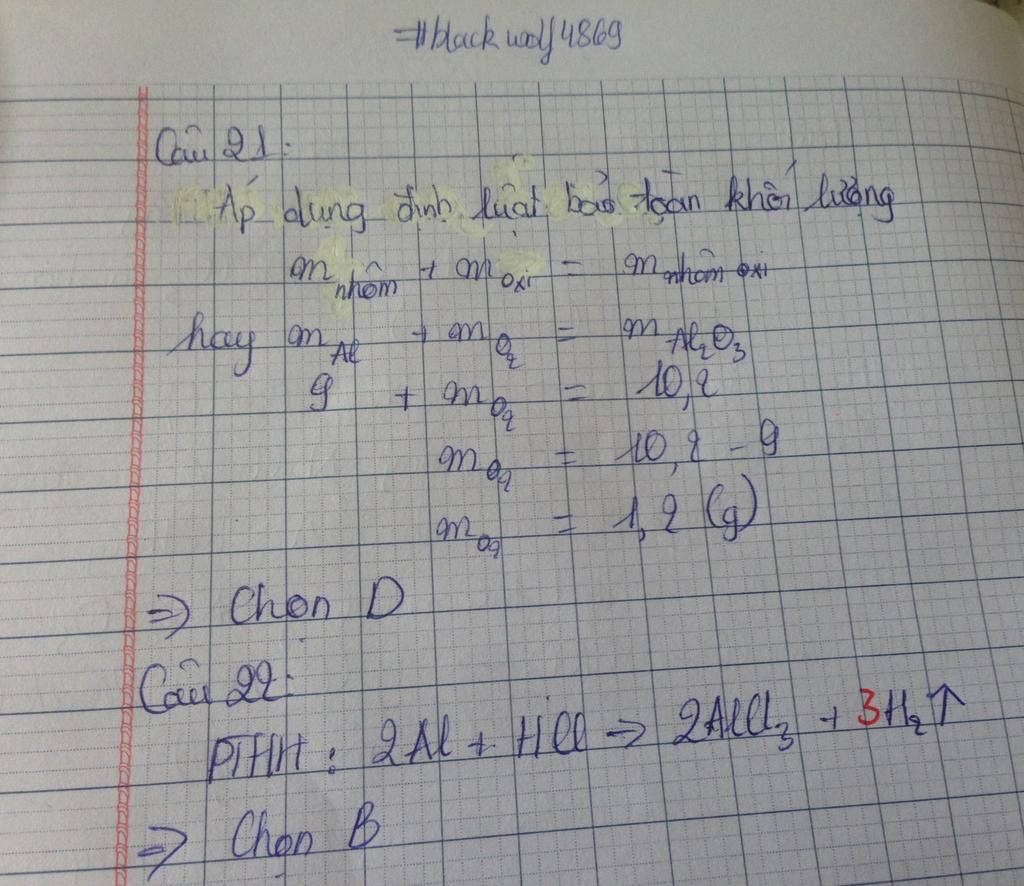 #blackwolf4869
Câu 21:
Áp dụng định luật bảo toàn khối lượng
m nhôm + m oxi = m nhôm oxi
hay m Al + m O₂ = m Al₂O₃
9 + m O₂ = 10,2
m O₂ = 10,2 - 9
m O₂ = 1,2 (g)
⇒ Chọn D
Câu 22:
PTHH: 2Al + HCl → 2AlCl₃ + 3H₂↑
⇒ Chọn B